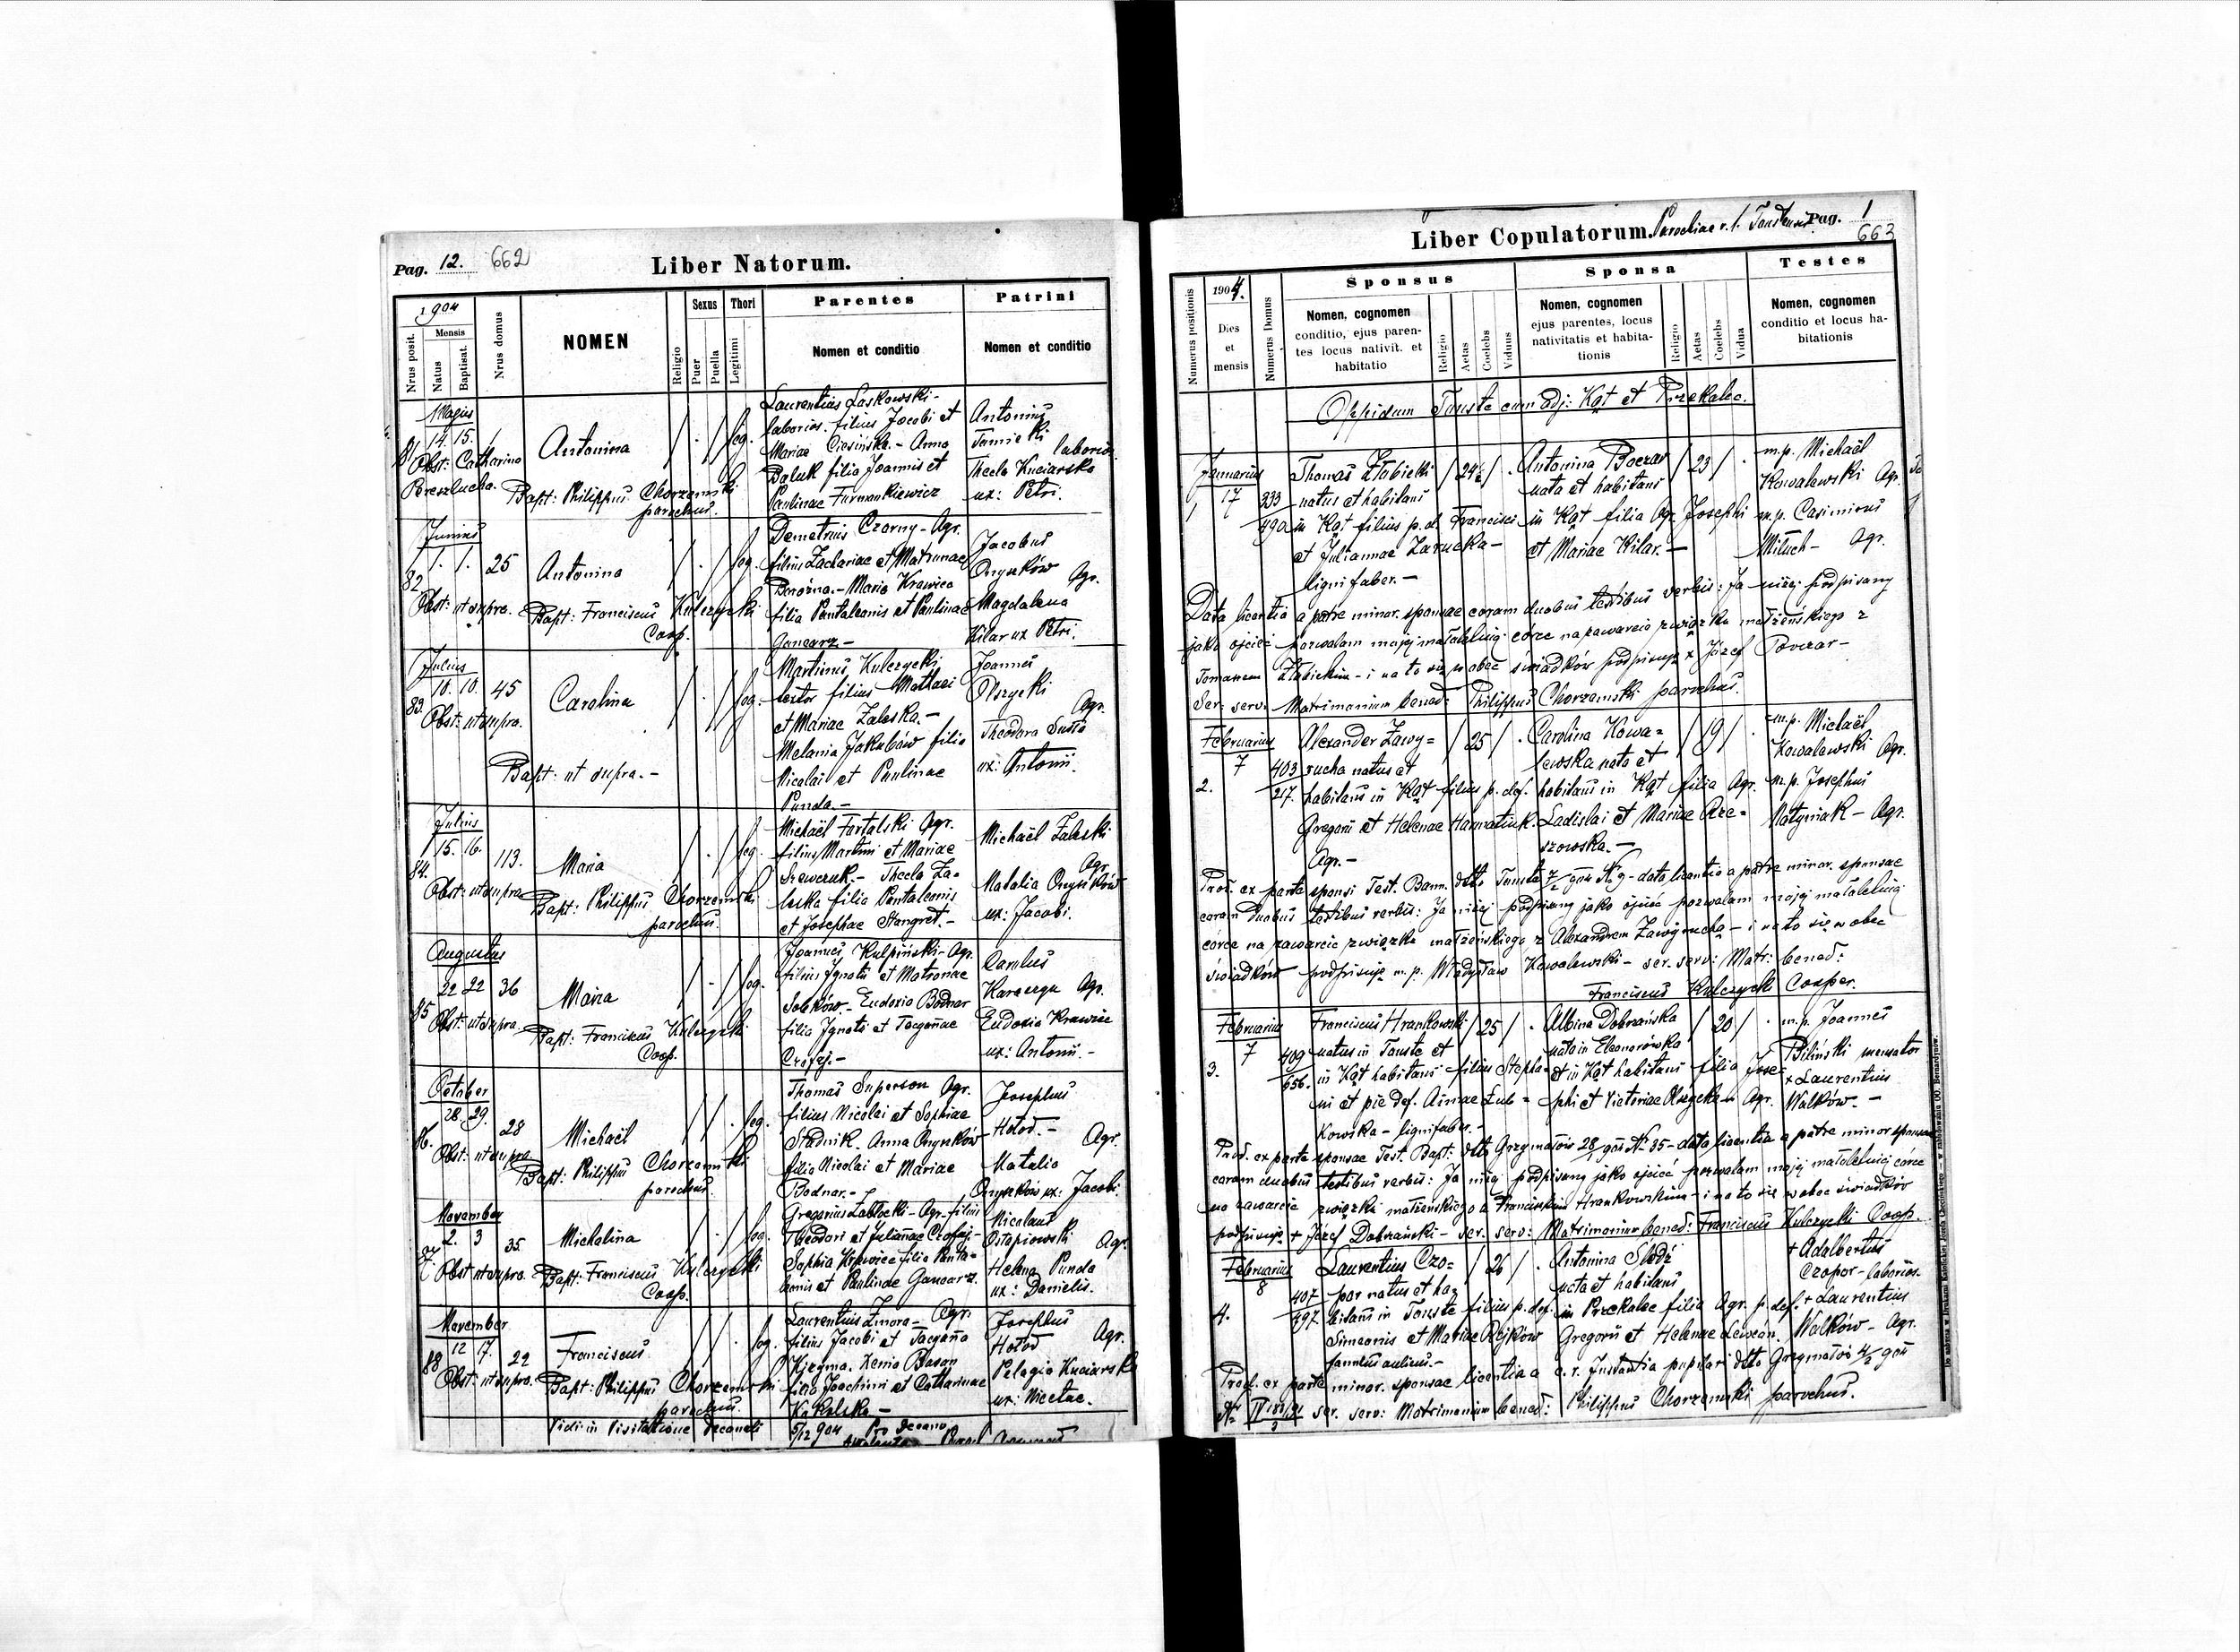 Pag. 12. 662
Liber Natorum.
1904
Nrus posit.
Mensis
Natus
Baptisat.
Nrus domus
NOMEN
Religio
Sexus
Puer
Puella
Thori
Legitimi
Parentes
Nomen et conditio
Patrini
Nomen et conditio
Majus
14. 15.
81
Obst: Catharina
Antonina
leg.
Bapt: Philippus Chorzemski
parochus.
Laurentius Laskowski -
laborios. filius Jacobi et
Mariae Ciesińska. - Anna
Baluk filia Joannis et
Paulinae Furmankiewicz
Antonius
laborios.
Thecla Kuciarska
ux: Petri.
Junius
1. 1. 25
82
Obst: ut supra.
Antonina
leg.
Bapt: Franciscus Kulczycki
Coop.
Demetrius Czorny - Agr.
filius Zachariae et Matronae
Maria Krawiec
filia Pantaleonis et Paulinae
Gancarz -
Jacobus
Onyszków Agr.
Magdalena
Kilar ux Petri.
Julius
10. 10. 45
83.
Obst: ut supra.
Carolina
leg.
Bapt: ut supra. -
Martinus Kulczycki
filius Mathaei
et Mariae Zaleska. -
Melania Jakubów filia
Nicolai et Paulinae
Punda. -
Joannes
Olszycki Agr.
Theodora
ux: Antonii.
Julius
15. 16. 113.
84.
Obst: ut supra
Maria
leg.
Bapt: Philippus Chorzemski
parochus.
Michaël Agr.
filius Martini et Mariae
Szewczuk. - Thecla Za=
leska filia Pantaleonis
et Josephae Stangret. -
Michaël Zaleski
Agr.
Natalia Onyszków
ux: Jacobi.
Augustus
22 22 36
85
Obst: ut supra.
Maria
leg.
Bapt: Franciscus Kulczycki
Coop.
Joannes Kulpiński - Agr.
filius Ignatii et Matronae
Sobków. - Eudoxia Bodnar
filia Ignatii et
Carolus
Agr.
Eudoxia Krawiec
ux: Antonii. -
October
28. 29. 28
86.
Obst: ut supra
Michaël
leg.
Bapt: Philippus Chorzemski
parochus.
Thomas Superson Agr.
filius Nicolai et Sophiae
Stadnik. Anna Onyszków
filia Nicolai et Mariae
Bodnar. -
Josephus
Hołod. - Agr.
Natalia
Onyszków ux: Jacobi.
November
2. 3 35
87
Obst: ut supra.
Michalina
leg.
Bapt: Franciscus Kulczycki
Coop.
Gregorius Zabłocki - Agr. filius
Theodori et Julianae
Sophia Krawiec filia Panta=
leonis et Paulinae Gancarz.
Nicolaus
Ostapiowski Agr.
Helena Punda
ux: Danielis.
November
12 17. 22
88
Obst: ut supra.
Franciscus
leg.
Bapt: Philippus Chorzemski
parochus.
Laurentius Zmora - Agr.
filius Jacobi et
Xenia
filia Joachimi et Catharinae
Josephus
Hołod Agr.
Pelagia Kuciarska
ux: Nicetae.
Vidi in Visitatione Decanali 5/12 904
Liber Copulatorum. Parochiae r. l. Toustensis Pag. 1
663
Numerus positionis
1904.
Dies
et
mensis
Numerus Domus
Sponsus
Nomen, cognomen
conditio, ejus paren-
tes locus nativit. et
habitatio
Religio
Aetas
Coelebs
Viduus
Sponsa
Nomen, cognomen
ejus parentes, locus
nativitatis et habita-
tionis
Religio
Aetas
Coelebs
Vidua
Testes
Nomen, cognomen
conditio et locus ha-
bitationis
Oppidum Touste cum adj: Kąt et Przekalec.
Januarius
17
1
333
490
Thomas Złabicki
natus et habitans
in Kąt filius p. d. Francisci
et Juliannae Zarucka -
lignifaber. -
24½
Antonina Boczar
nata et habitans
in Kąt filia Agr. Josephi
et Mariae Kilar. -
23
m.p. Michaël
Kowalewski Agr.
m.p. Casimirus
Miluch - Agr.
Data licentia a patre minor. sponsae coram duobus testibus verbis: Ja niżej podpisany
jako ojciec pozwalam mojej małoletniej córce na zawarcie związku małżeńskiego z
Tomaszem Złabickim - i na to się wobec świadków podpisuję x Józef Boczar -
Ser. serv. Matrimonium bened: Philippus Chorzemski parochus.
Februarius
7
2.
403
217.
Alexander Zawy=
rucha natus et
habitans in Kąt filius p. def.
Gregorii et Helenae Harmatiuk.
Agr. -
25
Carolina Kowa=
lewska nata et
habitans in Kąt filia Agr.
Ladislai et Mariae Rze=
szowska. -
19
m.p. Michaël
Kowalewski Agr.
m.p. Josephus
Matyniak - Agr.
Prod. ex parte sponsi Test. Bann. dtto Touste 7/2 904 N. 9 - data licentia a patre minor. sponsae
coram duobus testibus verbis: Ja niżej podpisany jako ojciec pozwalam mojej małoletniej
córce na zawarcie związku małżeńskiego z Alexandrem Zawyruchą - i na to się wobec
świadków podpisuję m.p. Władysław Kowalewski - ser. serv: Matr: bened:
Franciscus Kulczycki Cooper.
Februarius
7
3.
409
656.
Franciscus Hrankowski
natus in Touste et
in Kąt habitans filius Stepha=
ni et pie def. Annae Łub=
kowska - lignifaber. -
25
Albina Dobrzańska
nata in Eleonorówka
et in Kąt habitans filia Jose=
phi et Victoriae Agr.
20
m.p. Joannes
Biliński mensator
+ Laurentius
Walków. -
Prod. ex parte sponsae Test. Bapt: dtto Grzymałów 28/1 904 N. 35 - data licentia a patre minor sponsae
coram duobus testibus verbis: Ja niżej podpisany jako ojciec pozwalam mojej małoletniej córce
na zawarcie związku małżeńskiego z Franciszkiem Hrankowskim - i na to się wobec świadków
podpisuję + Józef Dobrzański - ser. serv: Matrimonium bened: Franciscus Kulczycki Coop.
Februarius
8
4.
407
497
Laurentius Czo=
por natus et ha=
bitans in Touste filius p. def.
Simeonis et Mariae Rejków
famulus aulicus. -
26
Antonina Śledź
nata et habitans
in Przekalec filia Agr. p. def.
Gregorii et Helenae
+ Adalbertus
Czopor - laborios.
+ Laurentius
Walków - Agr.
Prod. ex parte minor. sponsae licentia a c. r. Instantia pupilari dtto Grzymałów 4/2 904
ser. serv: Matrimonium bened: Philippus Chorzemski parochus.